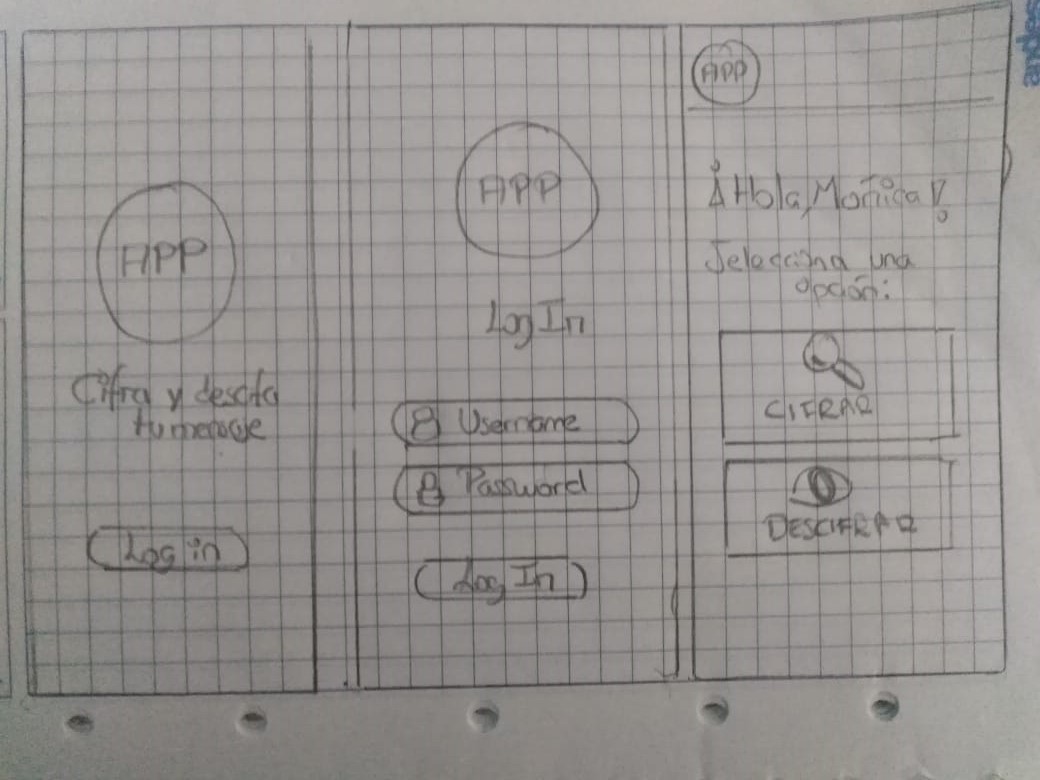 APP
Cifra y descifa
tu mensaje
Log in
APP
Log In
Username
Password
Log In
APP
¡Hola, Moñica!
Selecciona una
opción:
CIFRAR
DESCIFRAR